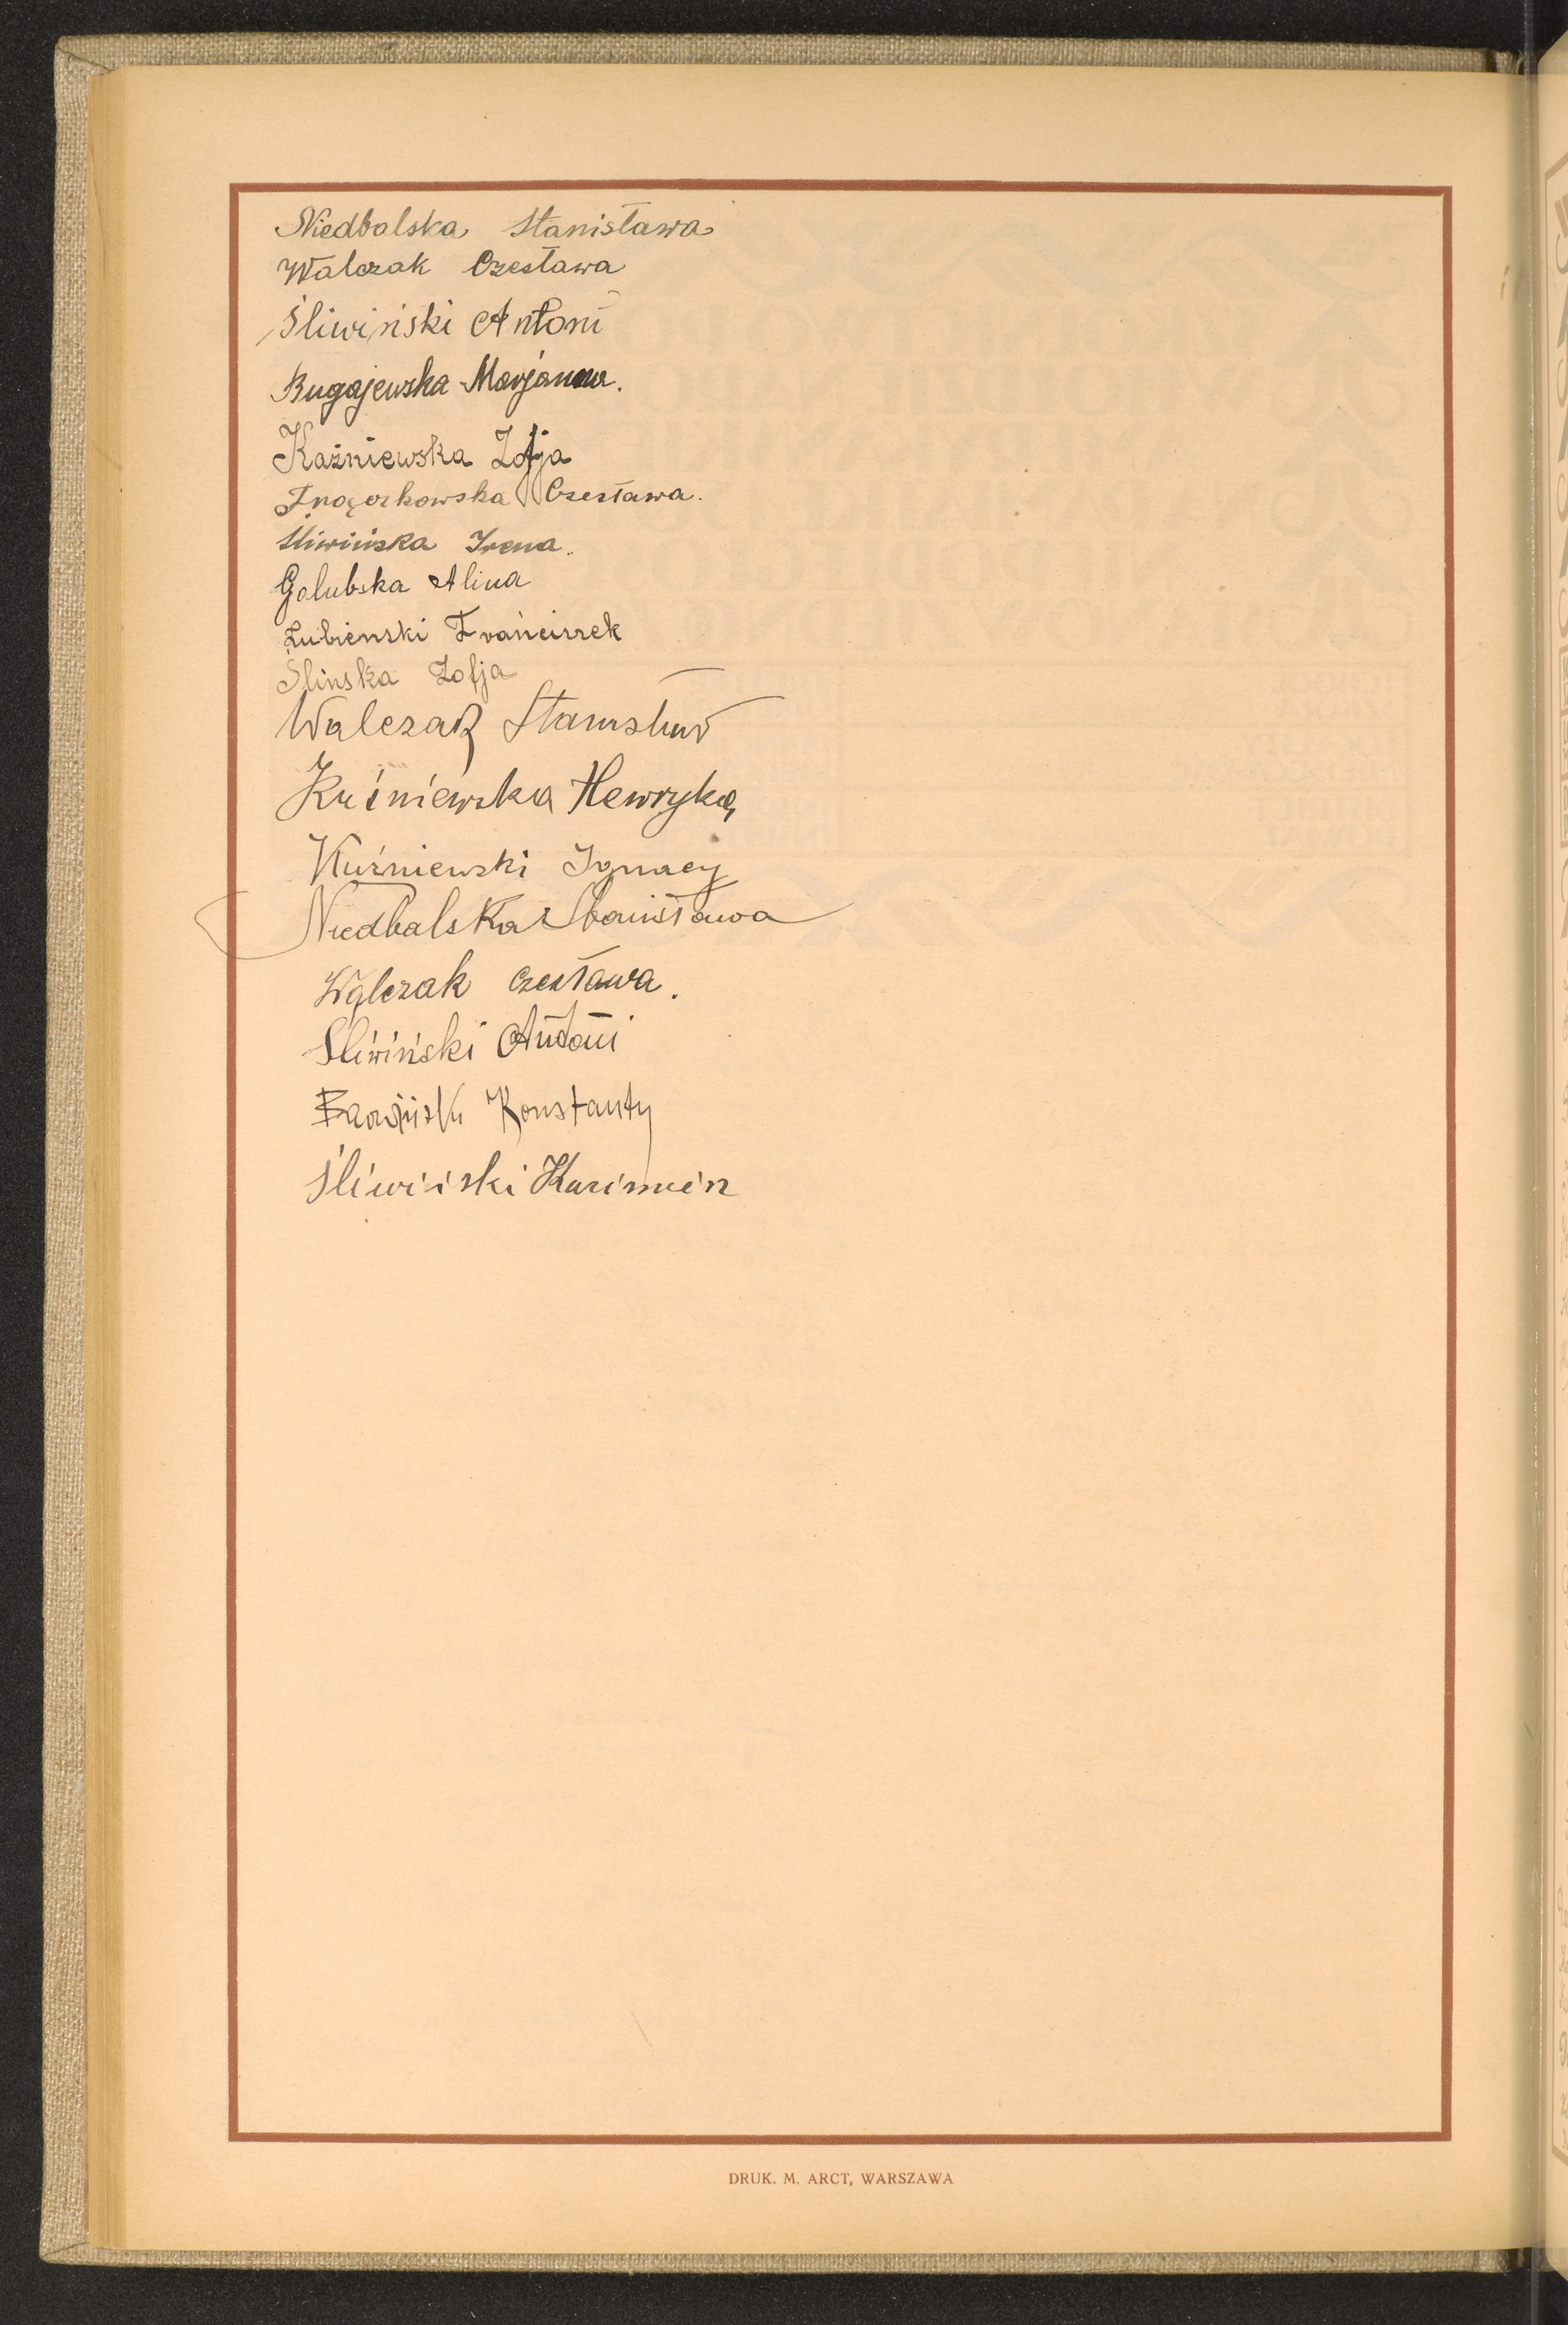 Niedbalska Stanisława
Walczak Czesława
Śliwiński Antoni
Bugajewska Marjanna.
Kaźniewska Zofja
Czesława.
Śliwińska Irena.
Golubska Alina
Łubieński Franciszek
Ślinska Zofja
Walczak Stanisław
Kuśniewska Henryka
Kuźniewski Ignacy
Niedbalska Stanisława
Walczak Czesława.
Śliwiński Antoni
Konstanty
Śliwiński Kazimierz
DRUK. M. ARCT, WARSZAWA